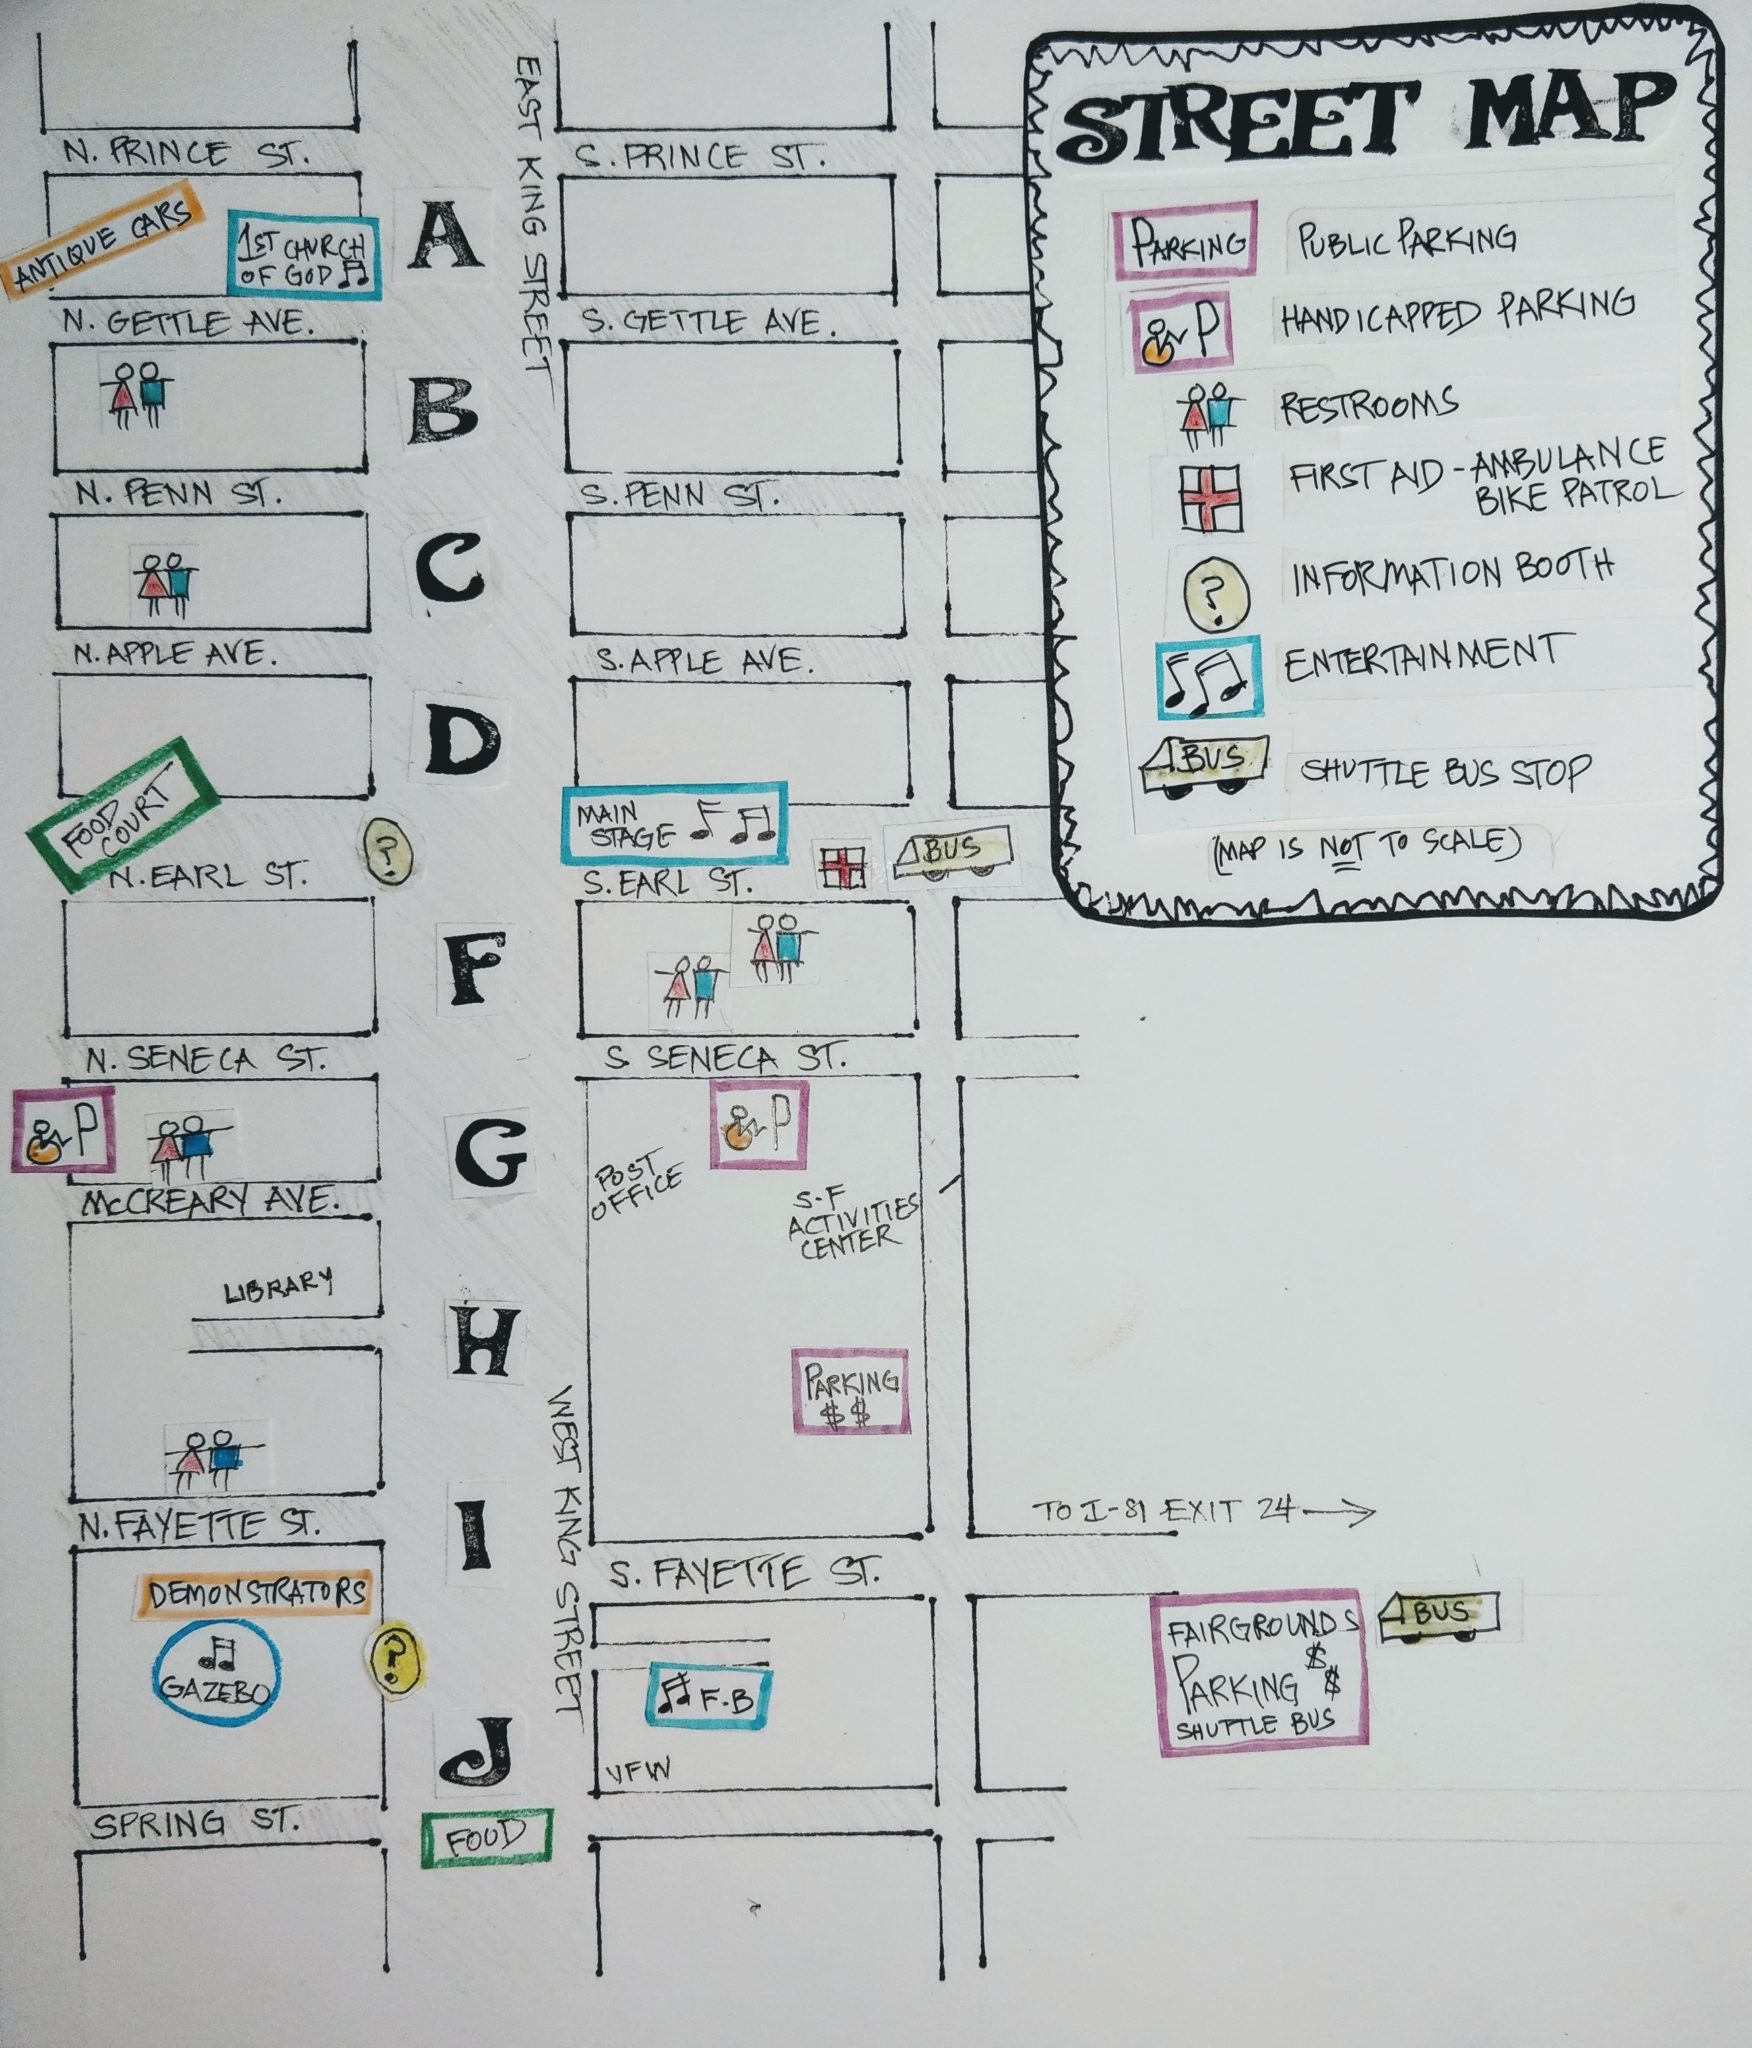 STREET MAP
PARKING PUBLIC PARKING
P HANDICAPPED PARKING
RESTROOMS
FIRST AID - AMBULANCE
BIKE PATROL
? INFORMATION BOOTH
ENTERTAINMENT
BUS SHUTTLE BUS STOP
(MAP IS NOT TO SCALE)
EAST KING STREET
N. PRINCE ST.
S. PRINCE ST.
ANTIQUE CARS
1ST CHURCH
OF GOD
A
N. GETTLE AVE.
S. GETTLE AVE.
B
N. PENN ST.
S. PENN ST.
C
N. APPLE AVE.
S. APPLE AVE.
D
FOOD
COURT
?
MAIN
STAGE
BUS
N. EARL ST.
S. EARL ST.
F
N. SENECA ST.
S SENECA ST.
P
P
G
POST
OFFICE
S-F
ACTIVITIES
CENTER
McCREARY AVE.
LIBRARY
H
PARKING
$ $
WEST KING STREET
N. FAYETTE ST.
I
TO I-81 EXIT 24
S. FAYETTE ST.
DEMONSTRATORS
GAZEBO
?
F-B
FAIRGROUNDS
$
PARKING $
SHUTTLE BUS
BUS
J
VFW
SPRING ST.
FOOD